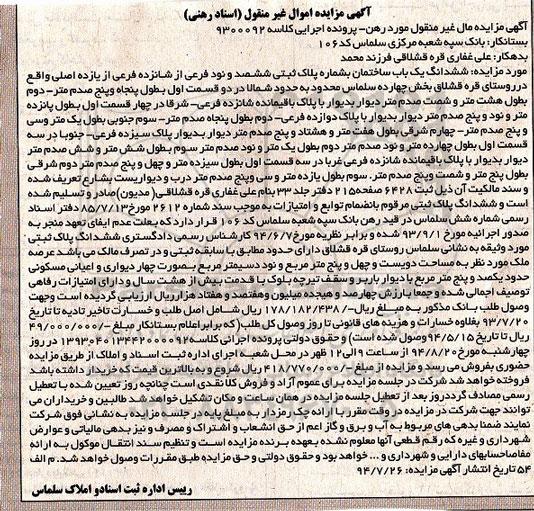 آگهی مزایده اموال غیر منقول (اسناد رهنی)
آگهی مزایده مال غیر منقول مورد رهن- پرونده اجرایی کلاسه ۹۳۰۰۰۹۲
بستانکار: بانک سپه شعبه مرکزی سلماس کد۱۰۶
بدهکار: علی غفاری قره قشلاقی فرزند محمد
مورد مزایده: ششدانگ یک باب ساختمان بشماره پلاک ثبتی ششصد و نود فرعی از شانزده فرعی از یازده اصلی واقع
در روستای قره قشلاق بخش چهارده سلماس محدود به حدود شمالا در دو قسمت اول بطول پنجاه وپنج صدم متر- دوم
بطول هشت متر و شصت صدم متر دیوار بدیوار با پلاک باقیمانده شانزده فرعی- شرقا در چهار قسمت اول بطول پانزده
متر و نود و پنج صدم متر دیوار بدیوار با پلاک دوازده فرعی- دوم بطول پنجاه صدم متر- سوم جنوبی بطول یک متر وسی
و پنج صدم متر- چهارم شرقی بطول هفت متر و هشتاد و پنج صدم متر دیوار بدیوار پلاک سیزده فرعی- جنوبا در سه
قسمت اول بطول چهارده متر و نود صدم متر دوم بطول یک متر و نود صدم متر سوم بطول شش متر و شش صدم متر
دیوار بدیوار با پلاک باقیمانده شانزده فرعی غربا در سه قسمت اول بطول سیزده متر و چهل و پنج صدم متر دوم شرقی
بطول پنج متر و شصت وپنج صدم متر. سوم بطول یازده متر و سی وپنج صدم متر درب و دیواریست بشارع تعریف شده
و سند مالکیت آن ذیل ثبت ۶۴۲۸ صفحه۲۱۵ دفتر جلد ۳۳ بنام علی غفاری قره قشلاقی( مدیون)صادر و تسلیم شده
است و ششدانگ پلاک ثبتی مرقوم بانضمام توابع و امتیازات به موجب سند شماره ۲۶۱۲ مورخ۸۵/۷/۱۳ دفتر اسناد
رسمی شماره شش سلماس در قید رهن بانک سپه شعبه سلماس کد ۱۰۶ قرار دارد که بعلت عدم ایفای تعهد منجر به
صدور اجرائیه مورخ ۹۳/۹/۱ شده و برابر نظریه مورخ ۹۴/۶/۷ کارشناس رسمی دادگستری ششدانگ پلاک ثبتی
مورد وثیقه به نشانی سلماس روستای قره قشلاق دارای حدود مطابق با سابقه ثبتی و در تصرف مالک می باشد عرصه
ملک مورد نظر به مساحت دویست و چهل و پنج متر مربع و نود دسیمتر مربع بصورت چهار دیواری و اعیانی مسکونی
حدود یکصد و پنج متر مربع با دیوار باربر و سقف تیرچه بلوک با قدمت بیش از هشت سال و دارای امتیازات رفاهی
توصیف اجمالی شده و جمعا با ارزش چهارصد و هیجده میلیون وهفتصد و هفتاد هزارریال ارزیابی گردیده است وجهت
وصول طلب بانک مذکور به مبلغ ریال- /۱۷۸/۱۸۲/۴۳۸ ریال شامل اصل طلب و خسارت تاخیر تادیه تا تاریخ
۹۳/۷/۲۰ بعلاوه خسارات و هزینه های قانونی تا روز وصول کل طلب( که برابر اعلام بستانکار مبلغ -/۴۹/۰۰۰/۰۰۰
ریال تا تاریخ ۹۴/۵/۱۵وصول شده است) و حقوق دولتی پرونده اجرائی کلاسه۱۳۹۳۰۴۰۱۳۴۴۲۰۰۰۰۹۲ در روز
چهارشنبه مورخ ۹۴/۸/۲۰ از ساعت ۹ الی۱۲ ظهر در محل شعبه اجرای اداره ثبت اسناد و املاک از طریق مزایده
حضوری بفروش می رسد و مزایده از مبلغ-/۴۱۸۷۷۰/۰۰۰ ریال شروع و به بالاترین قیمت که خریدار داشته باشد
فروخته خواهد شد شرکت در جلسه مزایده برای عموم آزاد و فروش کلا نقدی است چنانچه روز تعیین شده با تعطیل
رسمی مصادف گردد روز بعد از تعطیل جلسه مزایده در همان ساعت و مکان تشکیل خواهد شد طالبین و خریداران می
توانند جهت شرکت در مزایده در وقت مقرر با ارائه چک رمزدار به مبلغ پایه در جلسه مزایده به نشانی فوق شرکت
نمایند ضمنا بدهی های مربوط به آب و برق و گاز اعم از حق انشعاب و اشتراک و مصرف و نیز بدهی مالیاتی و عوارض
شهرداری و غیره که رقم قطعی آنها معلوم نشده بعهده برنده مزایده است و تنظیم سند انتقال موکول به ارائه
مفاصاحسابهای دارایی و شهرداری و ... خواهد بود و حقوق دولتی و حق مزایده طبق مقررات وصول خواهد شد. م الف
۵۴ تاریخ انتشار آگهی مزایده: ۹۴/۷/۲۶
رییس اداره ثبت اسنادو املاک سلماس